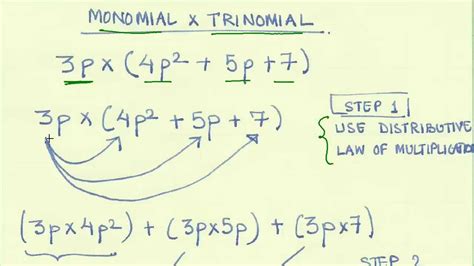 MONOMIAL x TRINOMIAL
3p x (4p² + 5p + 7)
3p x (4p² + 5p + 7)
STEP 1
USE DISTRIBUTIVE
LAW OF MULTIPLICATION
(3p x 4p²) + (3p x 5p) + (3p x 7)
STEP 2